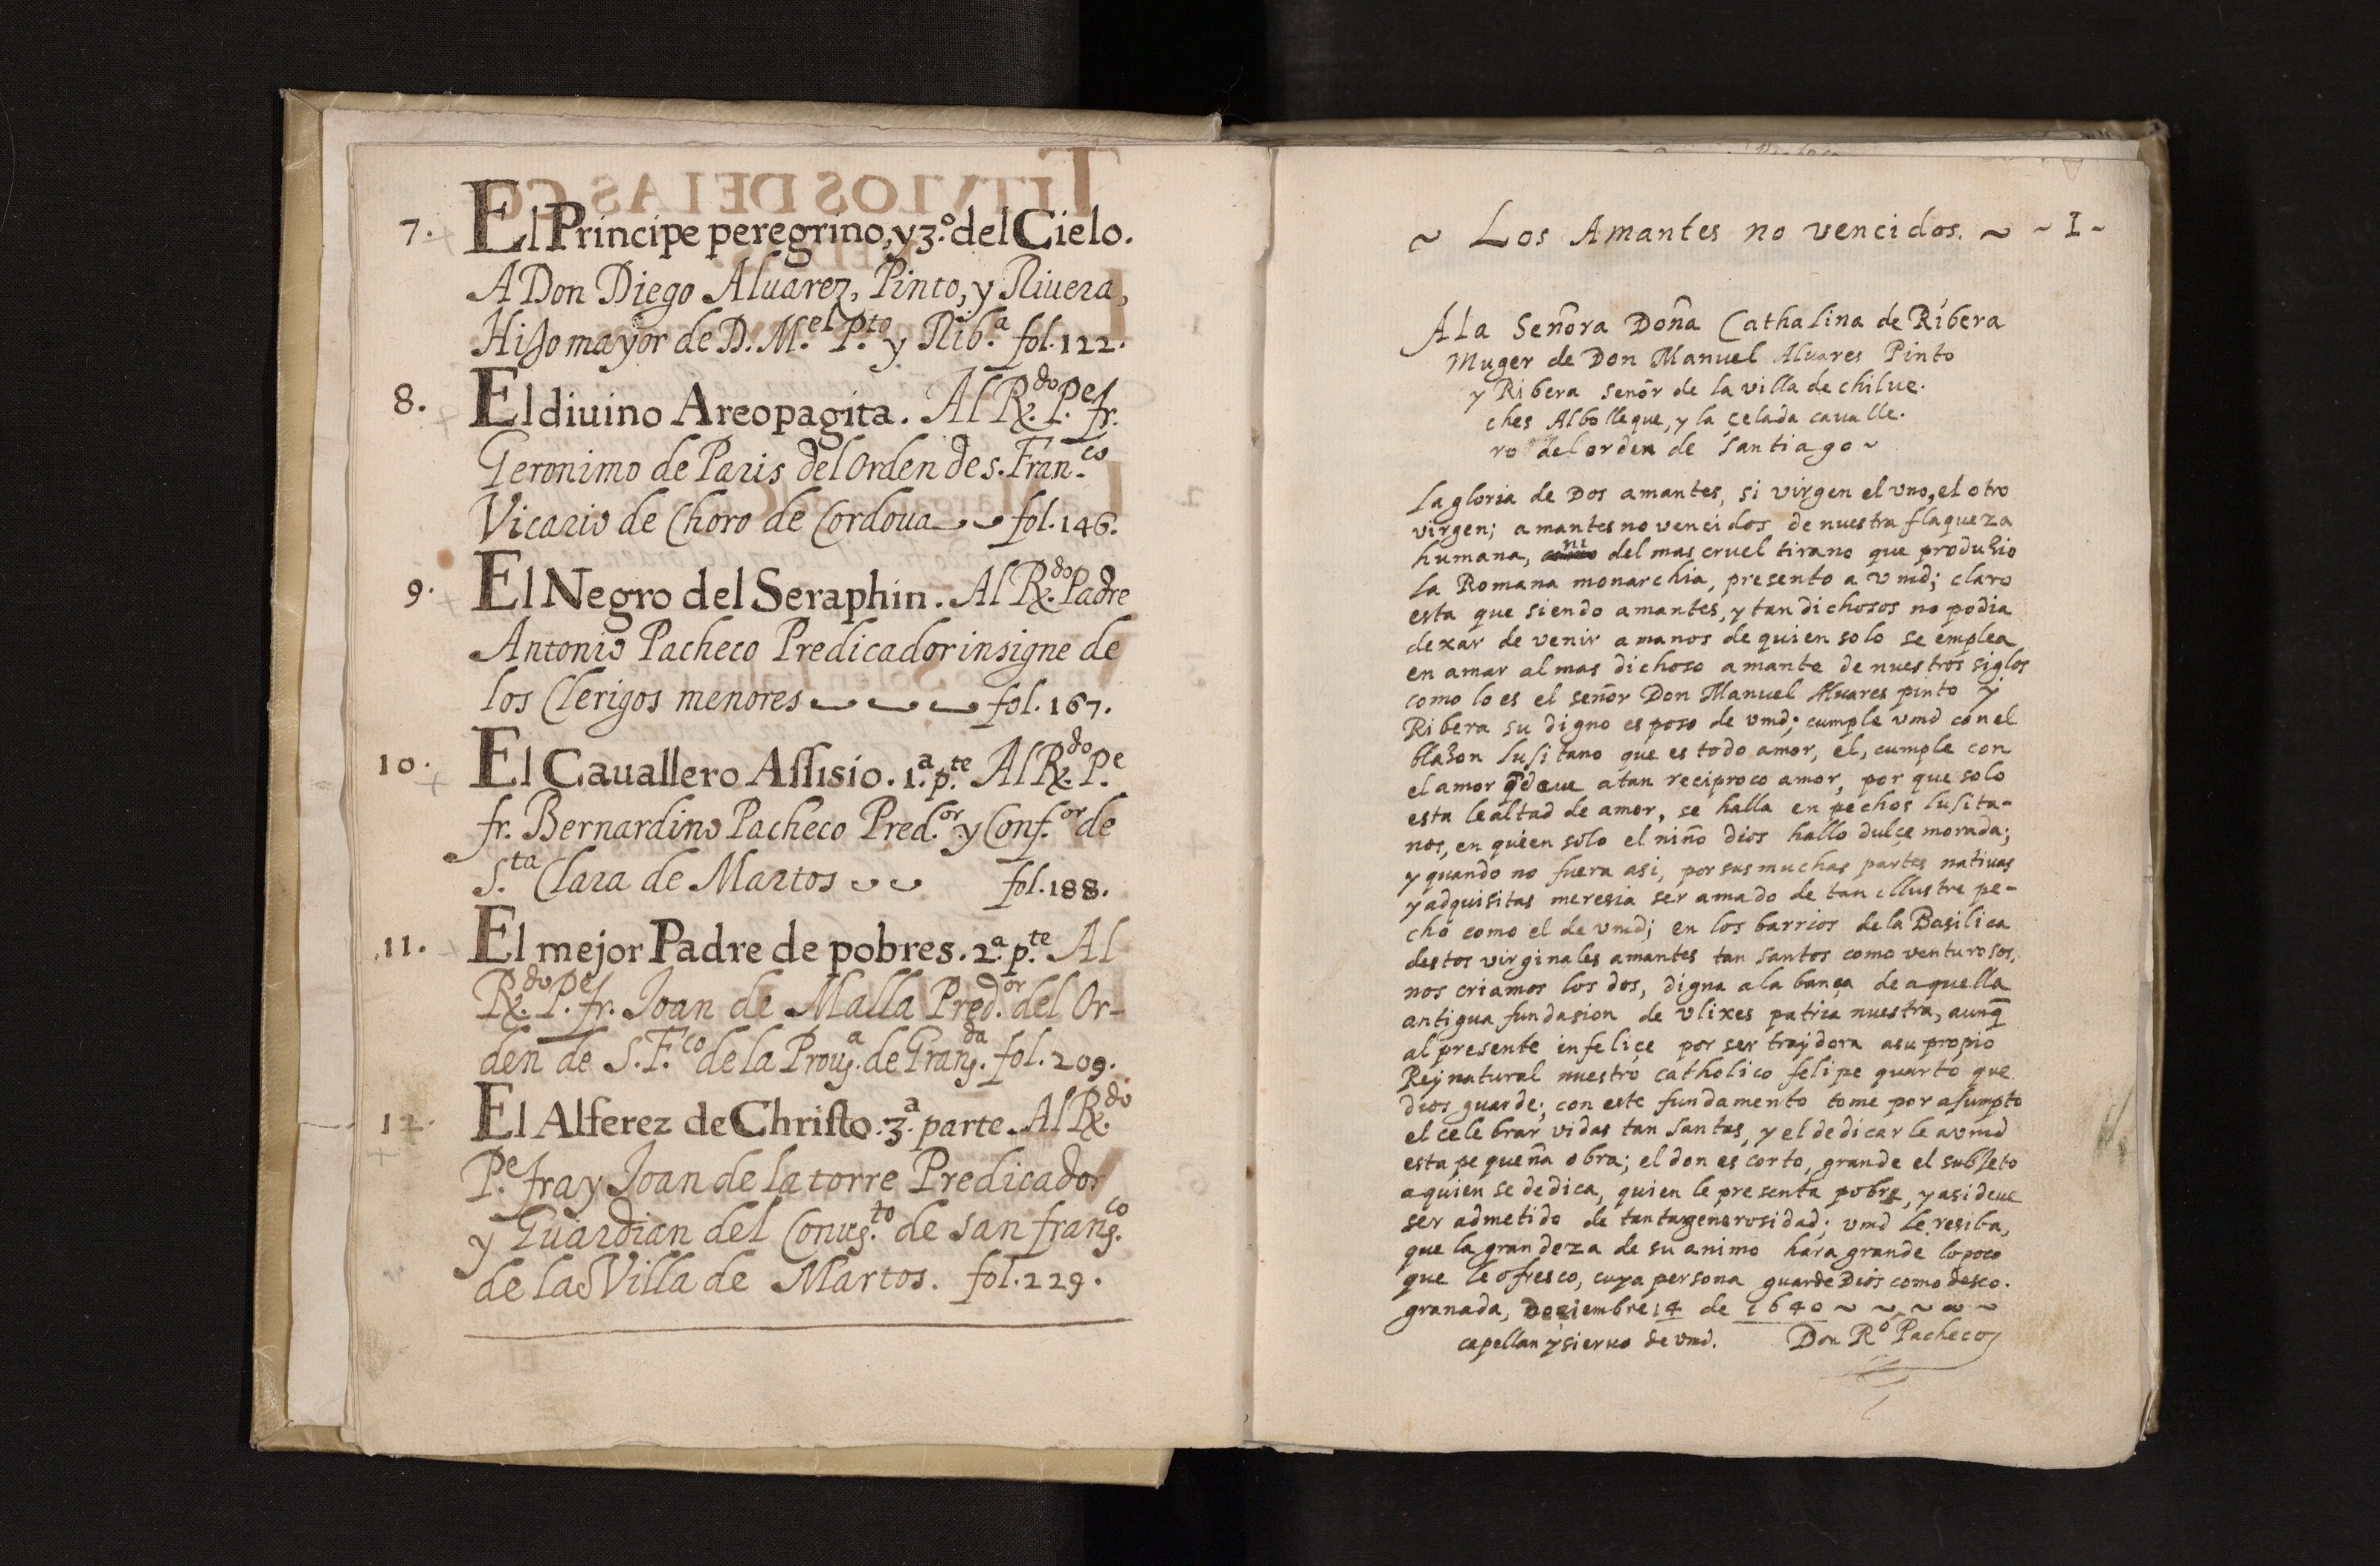 7. El Principe peregrino, y 3.º del Cielo.
A Don Diego Aluarez, Pinto, y Riuera,
Hijo mayor de D. M.el P.to y Rib.a fol. 122.
8. El diuino Areopagita. Al R.do P.e fr.
Geronimo de Paris del Orden de s. Fran.co
Vicario de Choro de Cordoua fol. 146.
9. El Negro del Seraphin. Al R.do Padre
Antonio Pacheco Predicador insigne de
los Clerigos menores fol. 167.
10. El Cauallero Assisio. 1.a p.te Al R.do P.e
fr. Bernardino Pacheco Pred.or y Conf.or de
S.ta Clara de Martos fol. 188.
11. El mejor Padre de pobres. 2.a p.te Al
R.do P.e fr. Joan de Malla Pred.or del Or-
den de S. F.co de la Prou.a de Gran.da fol. 209.
12. El Alferez de Christo. 3.a parte. Al R.do
P.e fray Joan de la torre Predicador
y Guardian del Conu.to de san fran.co
de la Villa de Martos. fol. 229.
~ Los Amantes no vencidos. ~ - I -
A la Señora Doña Cathalina de Ribera
Muger de Don Manuel Aluares Pinto
y Ribera señor de la villa de chilue.
ches Albolleque, y la çelada caualle.
ro del orden de santiago ~
La gloria de Dos amantes, si virgen el vno, el otro
virgen; amantes no vencidos de nuestra flaqueza
humana, ni del mas cruel tirano que produzio
la Romana monarchia, presento a vmd; claro
esta que siendo amantes, y tan dichosos no podia
dexar de venir a manos de quien solo se emplea
en amar al mas dichoso amante de nuestros siglos
como lo es el señor Don Manuel Aluares pinto y
Ribera su digno esposo de vmd; cumple vmd con el
blazon lusitano que es todo amor, el, cumple con
el amor q̃ deue a tan reciproco amor, por que solo
esta lealtad de amor, se halla en pechos lusita-
nos, en quien solo el niño dios hallo dulçe morada;
y quando no fuera asi, por sus muchas partes natiuas
y adquisitas meresia ser amado de tan illustre pe-
cho como el de vmd; en los barrios de la Basilica
destos virginales amantes tan santos como venturosos,
nos criamos los dos, digna alabança de aquella
antigua fundasion de vlixes patria nuestra, aunq̃
al presente infeliçe por ser traydora a su propio
Rey natural nuestro catholico felipe quarto que
dios guarde; con este fundamento tome por asumpto
el celebrar vidas tan santas, y el dedicarle a vmd
esta pequeña obra; el don es corto, grande el subjeto
a quien se dedica, quien le presenta pobre, y asi deue
ser admetido de tanta generosidad; vmd le resiba,
que la grandeza de su animo hara grande lo poco
que le ofresco, cuya persona guarde Dios como deseo.
granada, Deziembre 14 de 1640 ~ ~ ~ ~ ~
capellan y sieruo de vmd. Don R.o Pacheco